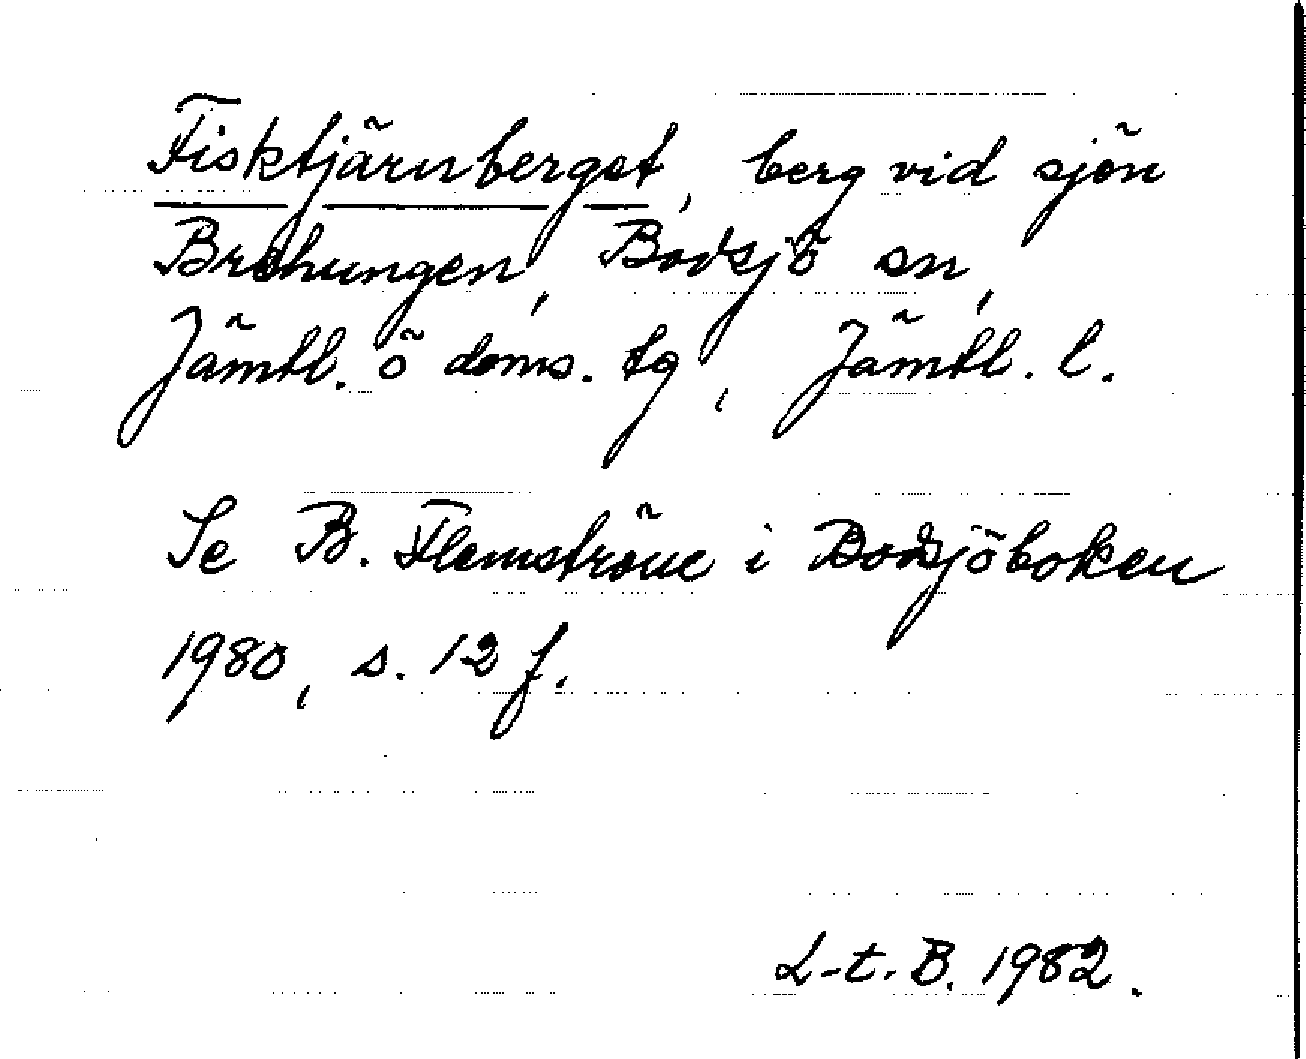 Fisktjärnberget, berg vid sjön
Brohungen, Bodsjö sn,
Jämtl. ö doms. tg, Jämtl. l.
Se B. Flemström i Bodsjöboken
1980, s. 12 f.
L-t. B. 1982.